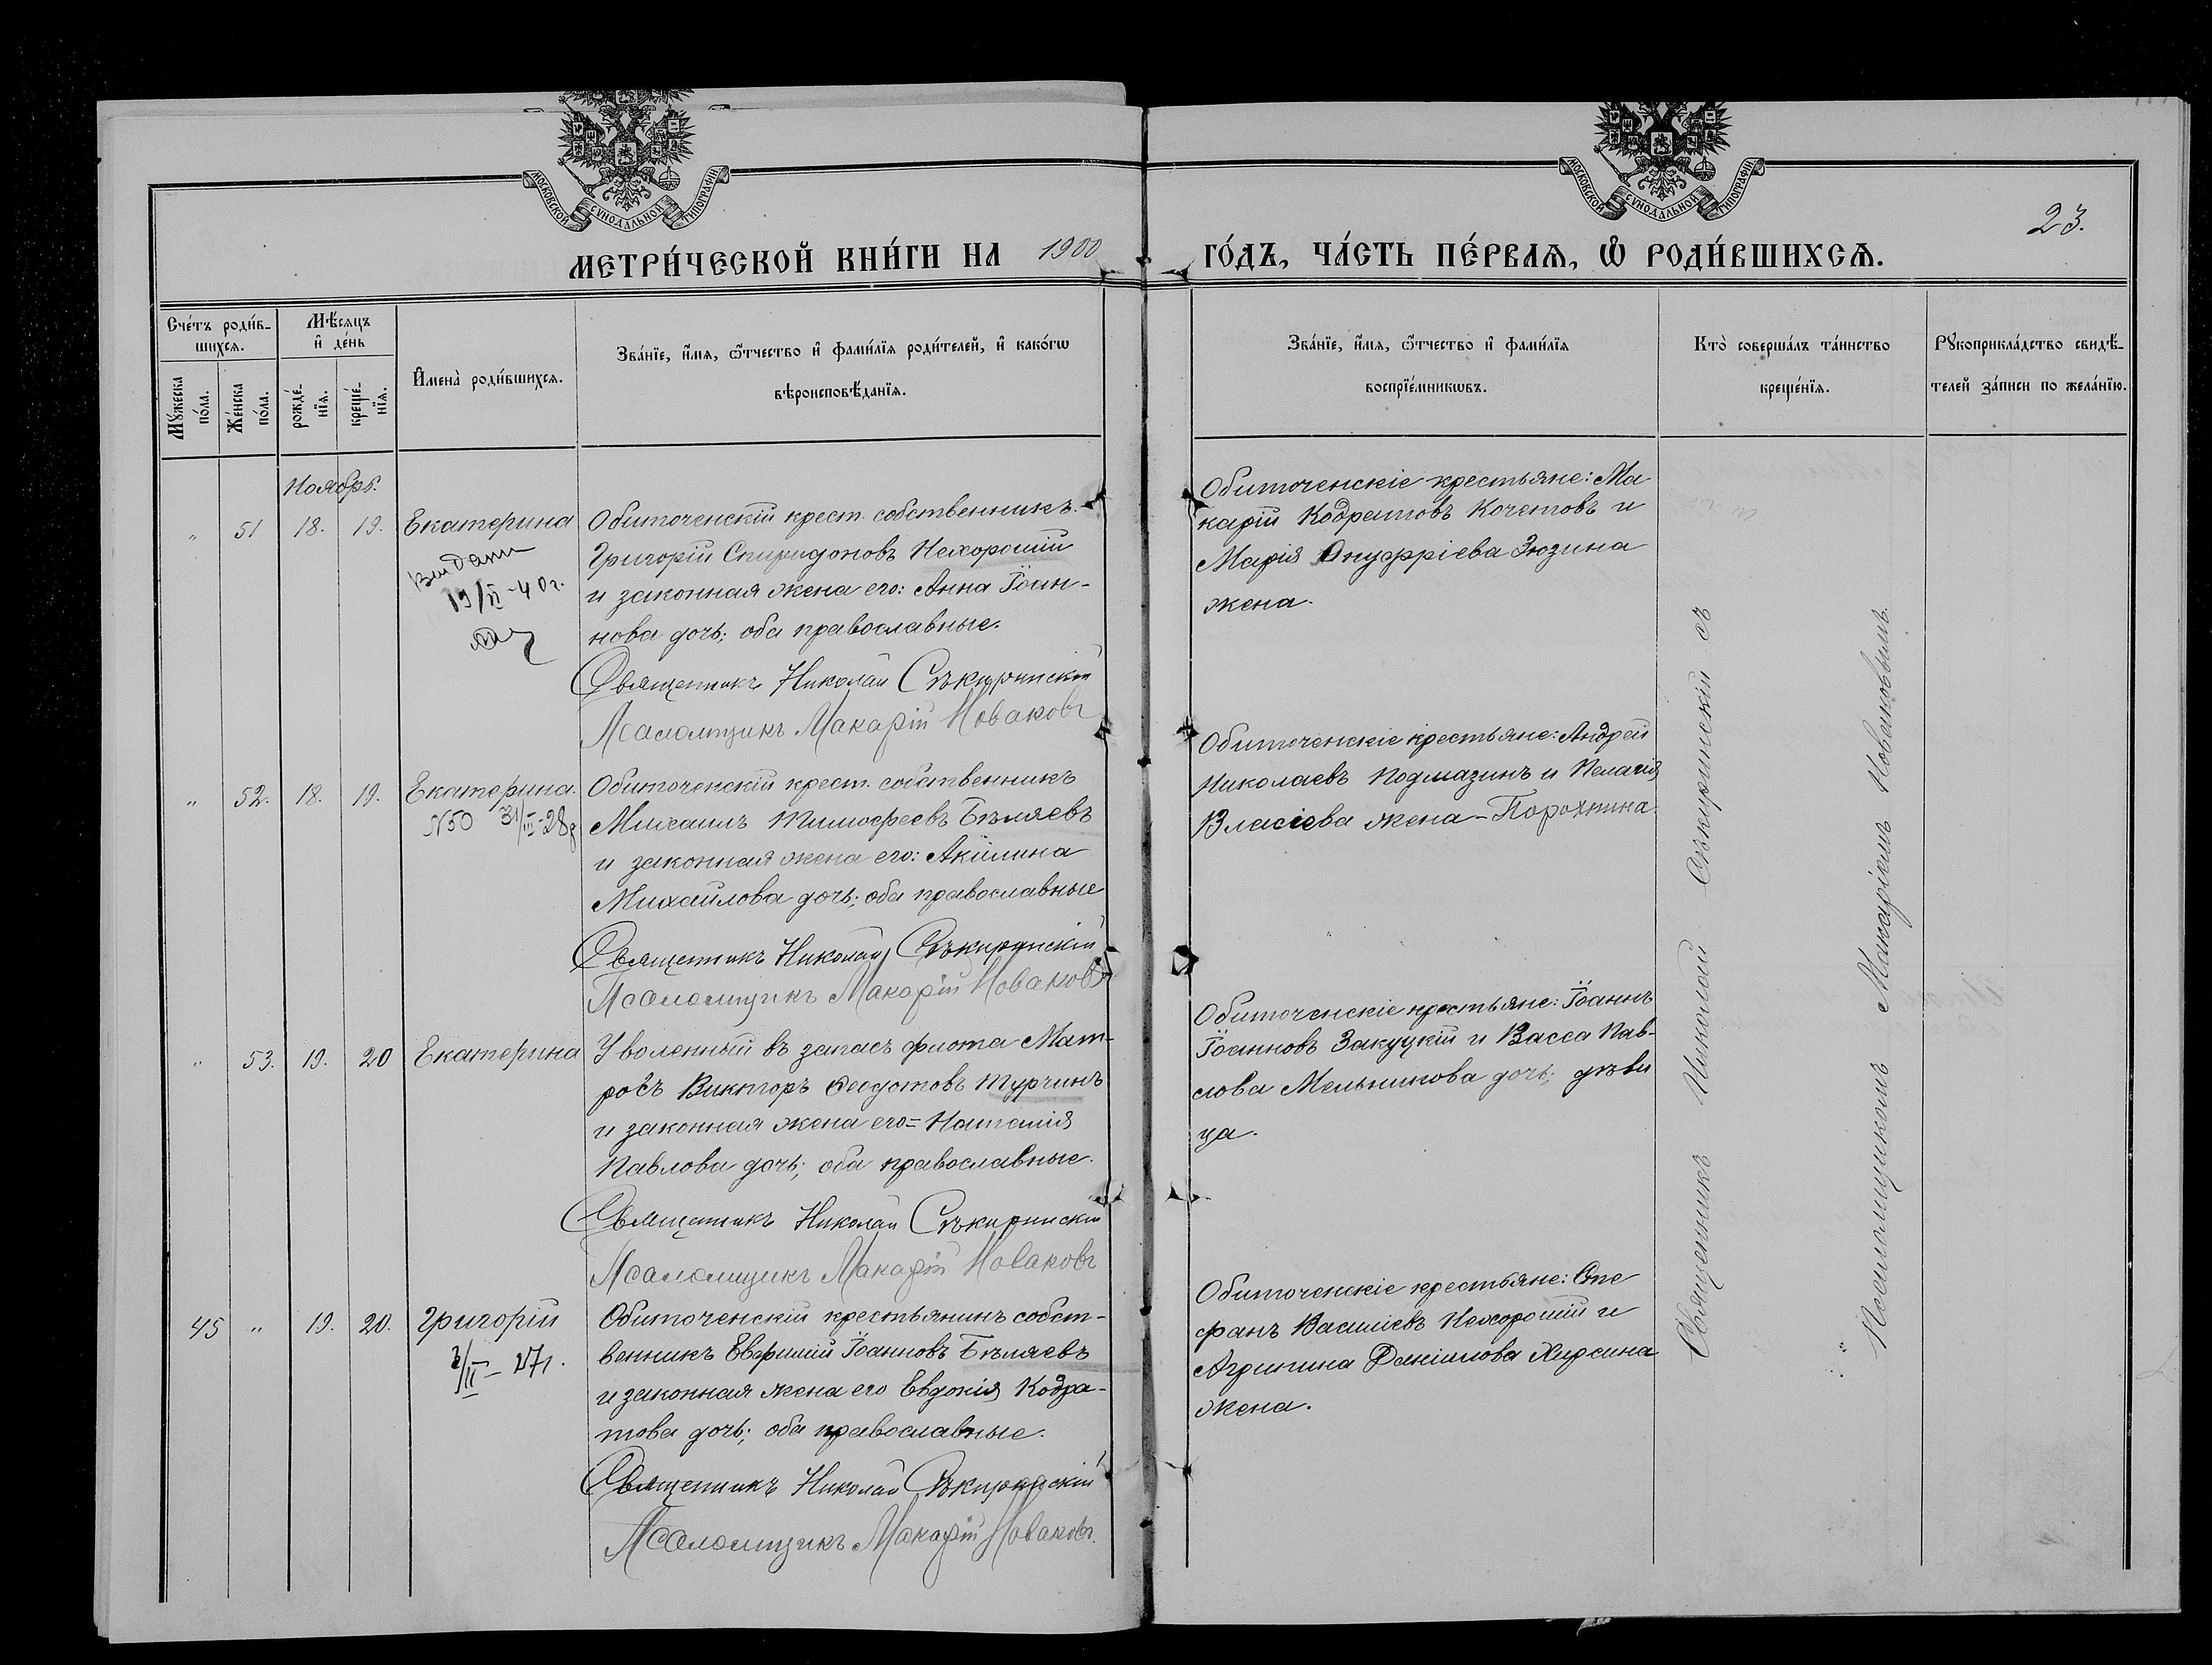 МОСКОВСКОЙ СѴНОДАЛЬНОЙ ТИПОГРАФІИ
МОСКОВСКОЙ СѴНОДАЛЬНОЙ ТИПОГРАФІИ
23.
МЕТРИ́ЧЕСКОЙ КНИ́ГИ НА 1900 ГО́ДЪ, ЧА́СТЬ ПЕ́РВАѦ, Ѡ҆ РОДИ́ВШИХСѦ.
Сче́тъ роди́в-
шихсѧ.
Мꙋ́жеска по́ла.
Же́нска по́ла.
Мѣ́сѧцъ
и҆ де́нь
рожде́-
нїѧ.
креще́-
нїѧ.
И҆мена̀ роди́вшихсѧ.
Зва́нїе, и҆́мѧ, ѻ҆́тчество и҆ фами́лїѧ роди́телей, и҆ како́гѡ
вѣроисповѣ́данїѧ.
Зва́нїе, и҆́мѧ, ѻ҆́тчество и҆ фами́лїѧ
воспрїе́мникѡвъ.
Кто̀ соверша́лъ та́инство
креще́нїѧ.
Рꙋкоприкла́дство свидѣ́-
телей за́писи по жела́нїю.
Ноябрь.
" 51 18. 19. Екатерина
Выдан
19/II-40г.
Обиточенскій крест. собственникъ
Григорій Спиридоновъ Нехорошій
и законная жена его: Анна Іоан-
нова дочь; оба православные.
Священникъ Николай Сѣкиринскій
Псаломщикъ Макарій Новаковъ
Обиточенскіе крестьяне: Ма
карій Кодратовъ Кочетовъ и
Марія Онуфріева Зюзина
жена.
" 52. 18. 19. Екатерина.
N50 31/III-28г
Обиточенскій крест. собственникъ
Михаилъ Тимофеевъ Бѣляевъ
и законная жена его: Акілина
Михайлова дочь; оба православные
Священникъ Николай Сѣкиринскій
Псаломщикъ Макарій Новаковъ
Обиточенскіе крестьяне: Андрей
Николаевъ Подмазинъ и Пелагія
Власіева жена – Порохнина.
" 53. 19. 20 Екатерина
Уволенный въ запасъ флота Мат-
росъ Викторъ Феодотовъ Турчинъ
и законная жена его = Наталія
Павлова дочь; оба православные.
Священникъ Николай Сѣкиринскій
Псаломщикъ Макарій Новаковъ
Обиточенскіе крестьяне: Іоаннъ
Іоанновъ Закуцкій и Васса Пав-
лова Мельникова дочь; дѣви
ца.
45 " 19. 20. Григорій
Обиточенскій крестьянинъ собст-
венникъ Евфимій Іоанновъ Бѣляевъ
и законная жена его Евдокія Кодра-
това дочь; оба православные.
Священникъ Николай Сѣкиринскій
Псаломщикъ Макарій Новаковъ.
Обиточенскіе крестьяне: Сте
фанъ Василіевъ Нехорошій и
Агрипина Даніилова Хирсина
жена.
Священникъ Николай Сѣкиринскій съ
Псаломщикомъ Макаріемъ Новаковымъ.